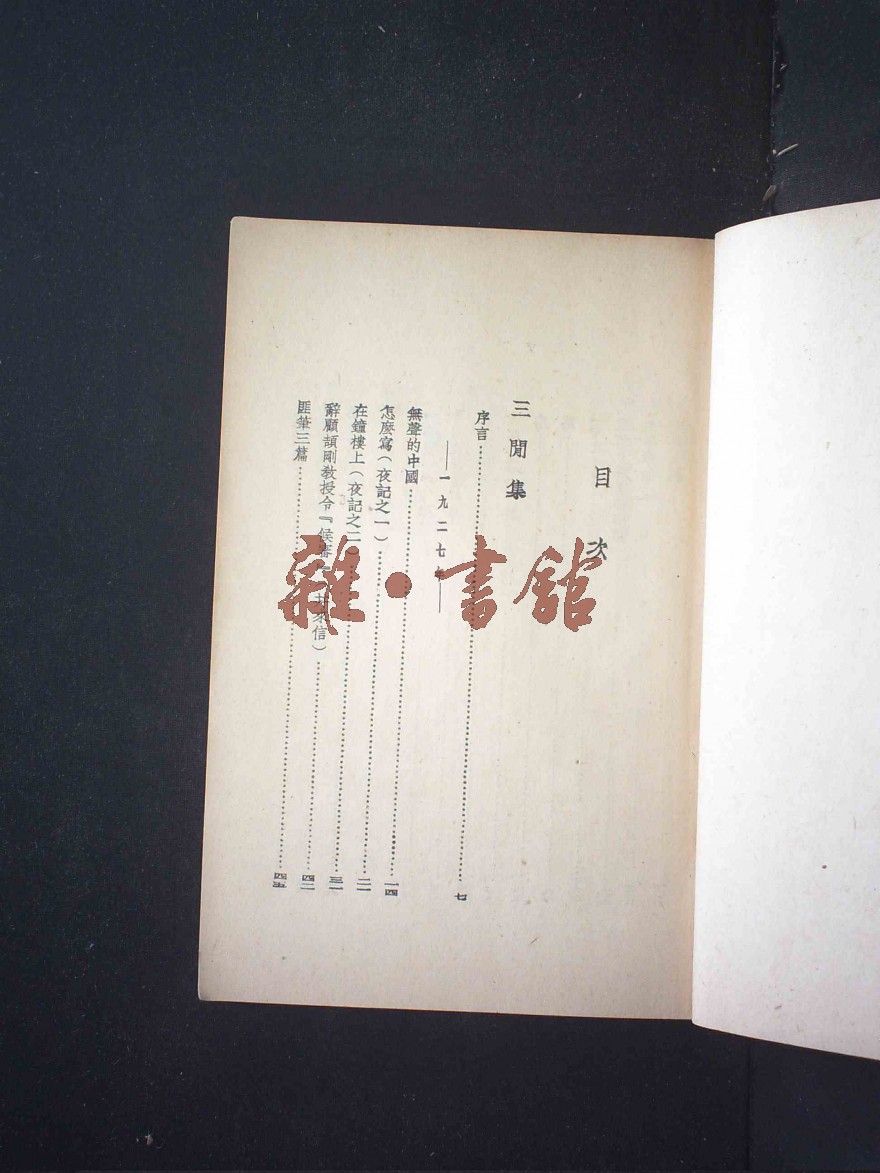 目次
三閒集
序言……七
——一九二七年——
無聲的中國……一四
怎麼寫（夜記之一）……二一
在鐘樓上（夜記之二）……三一
辭顧頡剛教授令『候審』 信）……四二
匪筆三篇……四五
雜·書館